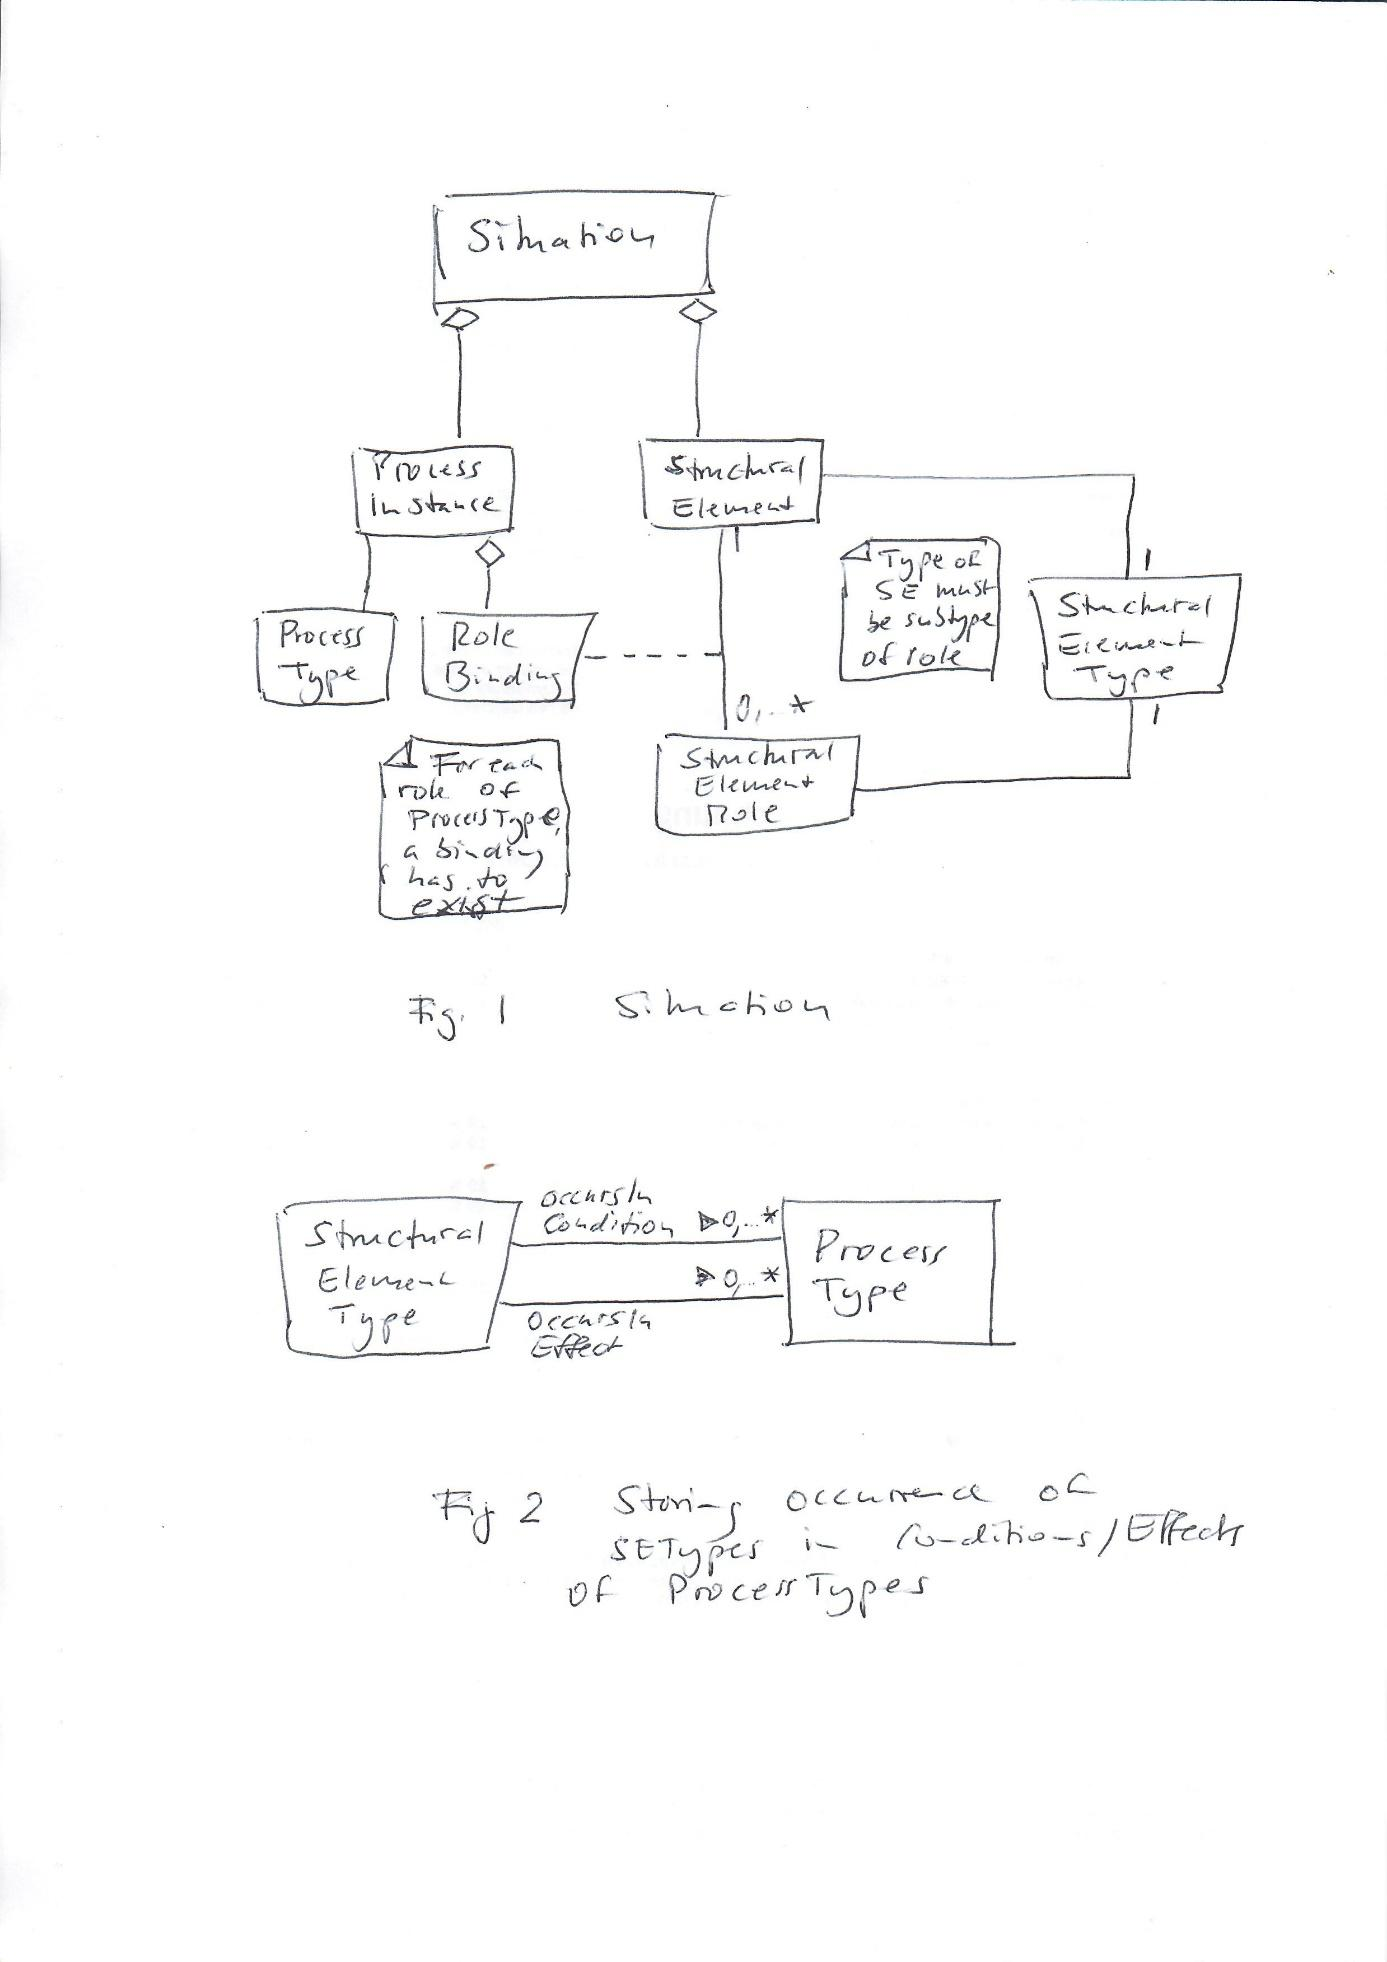 Situation
Process
Instance
Structural
Element
Type of
SE must
be subtype
of role
1
1
Structural
Element
Type
1
Process
Type
Role
Binding
0,..*
Structural
Element
Role
For each
role of
ProcessType,
a binding
has to
exist
Fig. 1 Situation
Structural
Element
Type
OccursIn
Condition
0,..*
0,..*
OccursIn
Effect
Process
Type
Fig 2 Storing occurrence of
SETypes in Conditions/Effects
of ProcessTypes